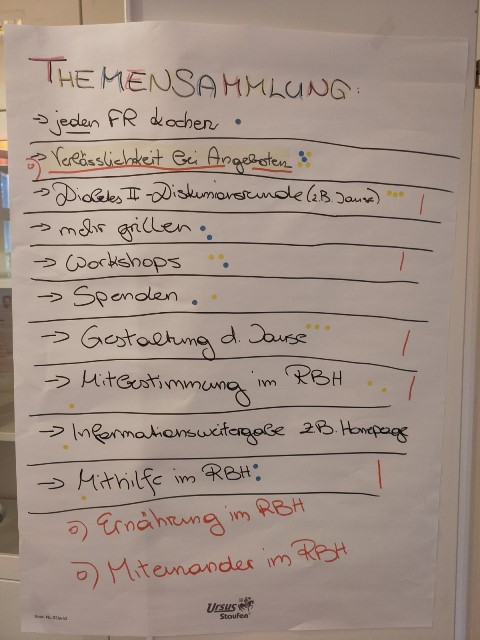 THEMENSAMMLUNG:
→ jeden FR kochen
o) → Verlässlichkeit bei Angeboten
→ Diabetes II - Diskussionsrunde (z.B. Jause)
→ mehr grillen
→ Workshops
→ Spenden
→ Gestaltung d. Jause
→ Mitbestimmung im RBH
→ Informationsweitergabe z.B. Homepage
→ Mithilfe im RBH
o) Ernährung im RBH
o) Miteinander im RBH
Ursus
Staufen